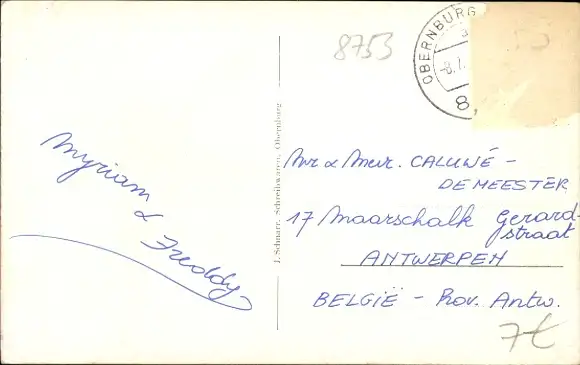 8753
OBERNBURG
-8.7.
8
Myriam
&
Freddy
J. Schnarr, Schreibwaren, Obernburg
Mr & Mevr. CALUWÉ -
DE MEESTER
17 Maarschalk Gerard-
straat
ANTWERPEN
BELGIË - Prov. Antw.
7€